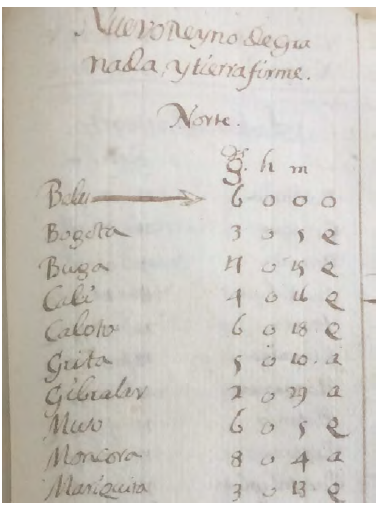 Nuevo Reyno de Gra
nada, y tierra firme.
Norte.
g. h m
6 0 0 0
Bogota 3 0 5 e
Buga 4 0 15 e
Cali 4 0 16 e
Caloto 6 0 18 e
Grita 5 0 10. a
Gibralar 2 0 29 a
Muso 6 0 5 e
8 0 4 a
Mariquita 3 0 13 e